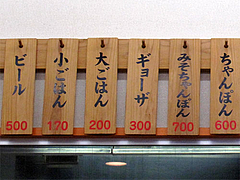 ちゃんぽん
600
みそちゃんぽん
700
ギョーザ
300
大ごはん
200
小ごはん
170
ビール
500